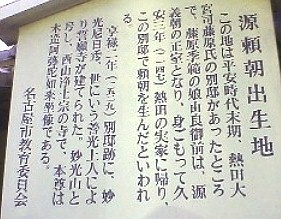 源頼朝出生地
この地は平安時代末期、熱田大
宮司藤原氏の別邸があったところ
で、藤原季範の娘由良御前は、源
義朝の正室となり、身ごもって久
安三年(一一四七)熱田の実家に帰り、
この別邸で頼朝を生んだといわれ
享禄二年(一五二九)別邸跡に、妙
光尼日秀、世にいう善光上人によ
り誓願寺が建てられた。妙光山と
号し、西山浄土宗の寺で、本尊は
木造阿弥陀如来坐像である。
名古屋市教育委員会